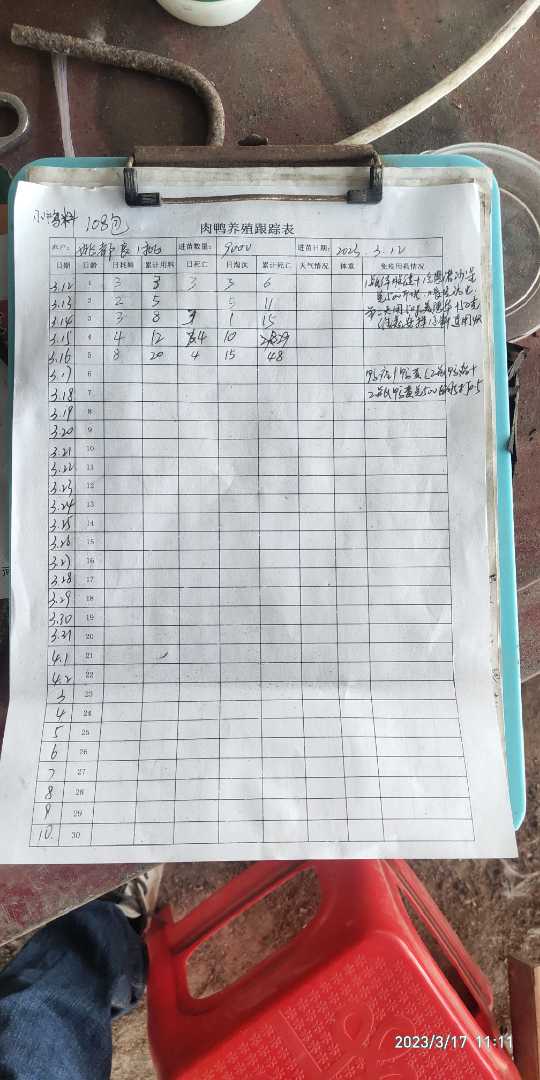 108包
肉鸭养殖跟踪表
农户: 进苗数量: 9000 进苗日期: 2023. 3. 12
日期 日龄 日耗料 累计用料 日死亡 日淘汰 累计死亡 天气情况 体重 免疫用药情况
3.12 1 3 3 3 3 6
3.13 2 2 5 5 11
3.14 3 3 8 3 1 15
3.15 4 4 12 4 10 29
3.16 5 8 20 4 15 48
3.17 6
3.18 7
3.19 8
3.20 9
3.21 10
3.22 11
3.23 12
3.24 13
3.25 14
3.26 15
3.27 16
3.28 17
3.29 18
3.30 19
3.31 20
4.1 21
4.2 22
3 23
4 24
5 25
6 26
7 27
8 28
9 29
10. 30
2023/3/17 11:11